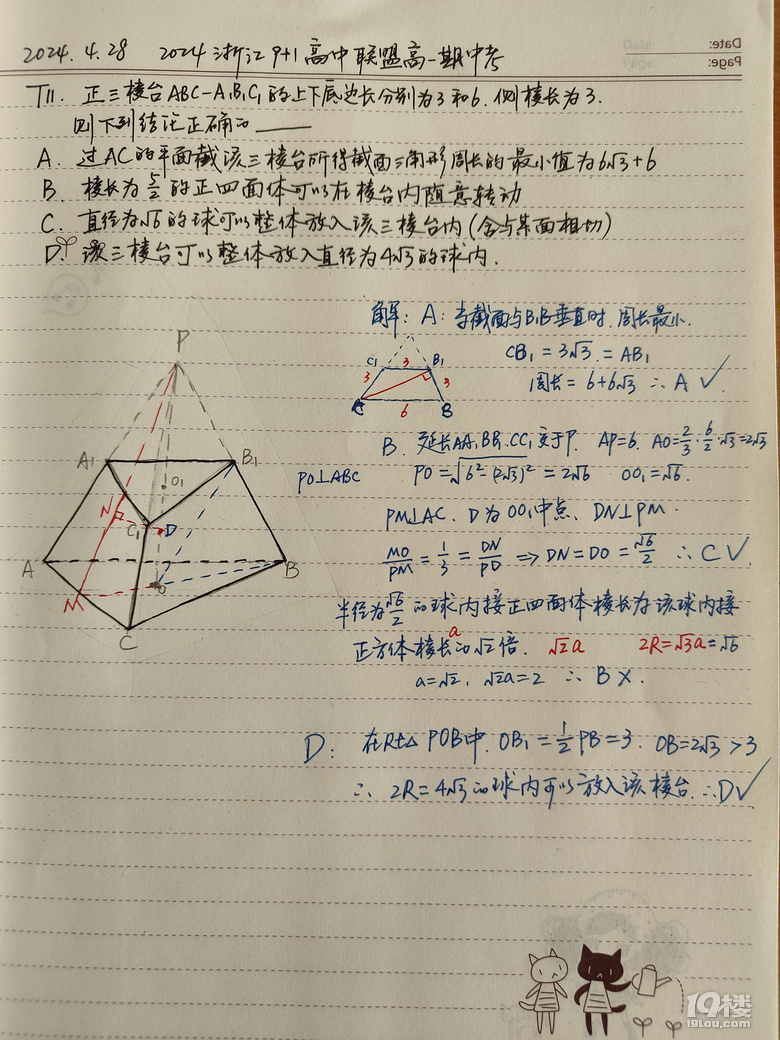 Date:
Page:
2024.4.28 2024浙江9+1高中联盟高一期中考
T11. 正三棱台ABC-A₁B₁C₁的上下底边长分别为3和6. 侧棱长为3.
则下列结论正确的______
A. 过AC的平面截该三棱台所得截面三角形周长的最小值为6√3+6
B. 棱长为5/2的正四面体可以在棱台内随意转动
C. 直径为√6的球可以整体放入该三棱台内(含与某面相切)
D. 该三棱台可以整体放入直径为4√3的球内.
解: A: 当截面与B₁B垂直时. 周长最小.
C₁ 3 B₁
3 3
C 6 B
CB₁=3√3=AB₁
周长=6+6√3 ∴A✓
B. 延长AA₁ BB₁ CC₁交于P. AP=6. AO=2/3·6/2·√3=2√3
PO⊥ABC PO=√(6²-(2√3)²)=2√6 OO₁=√6.
PM⊥AC. D为OO₁中点、DN⊥PM.
MO/PM=1/3=DN/PD ⇒DN=DO=√6/2 ∴C✓
半径为√6/2的球内接正四面体棱长为该球内接
正方体棱长a的√2倍. √2a 2R=√3a=√6
a=√2, √2a=2 ∴B×.
P
A₁ B₁
O₁
N C₁ D
A B
M O
C
D: 在Rt△POB中. OB₁=1/2PB=3. OB=2√3>3
∴ 2R=4√3的球内可以放入该棱台.∴D✓
19楼
19lou.com